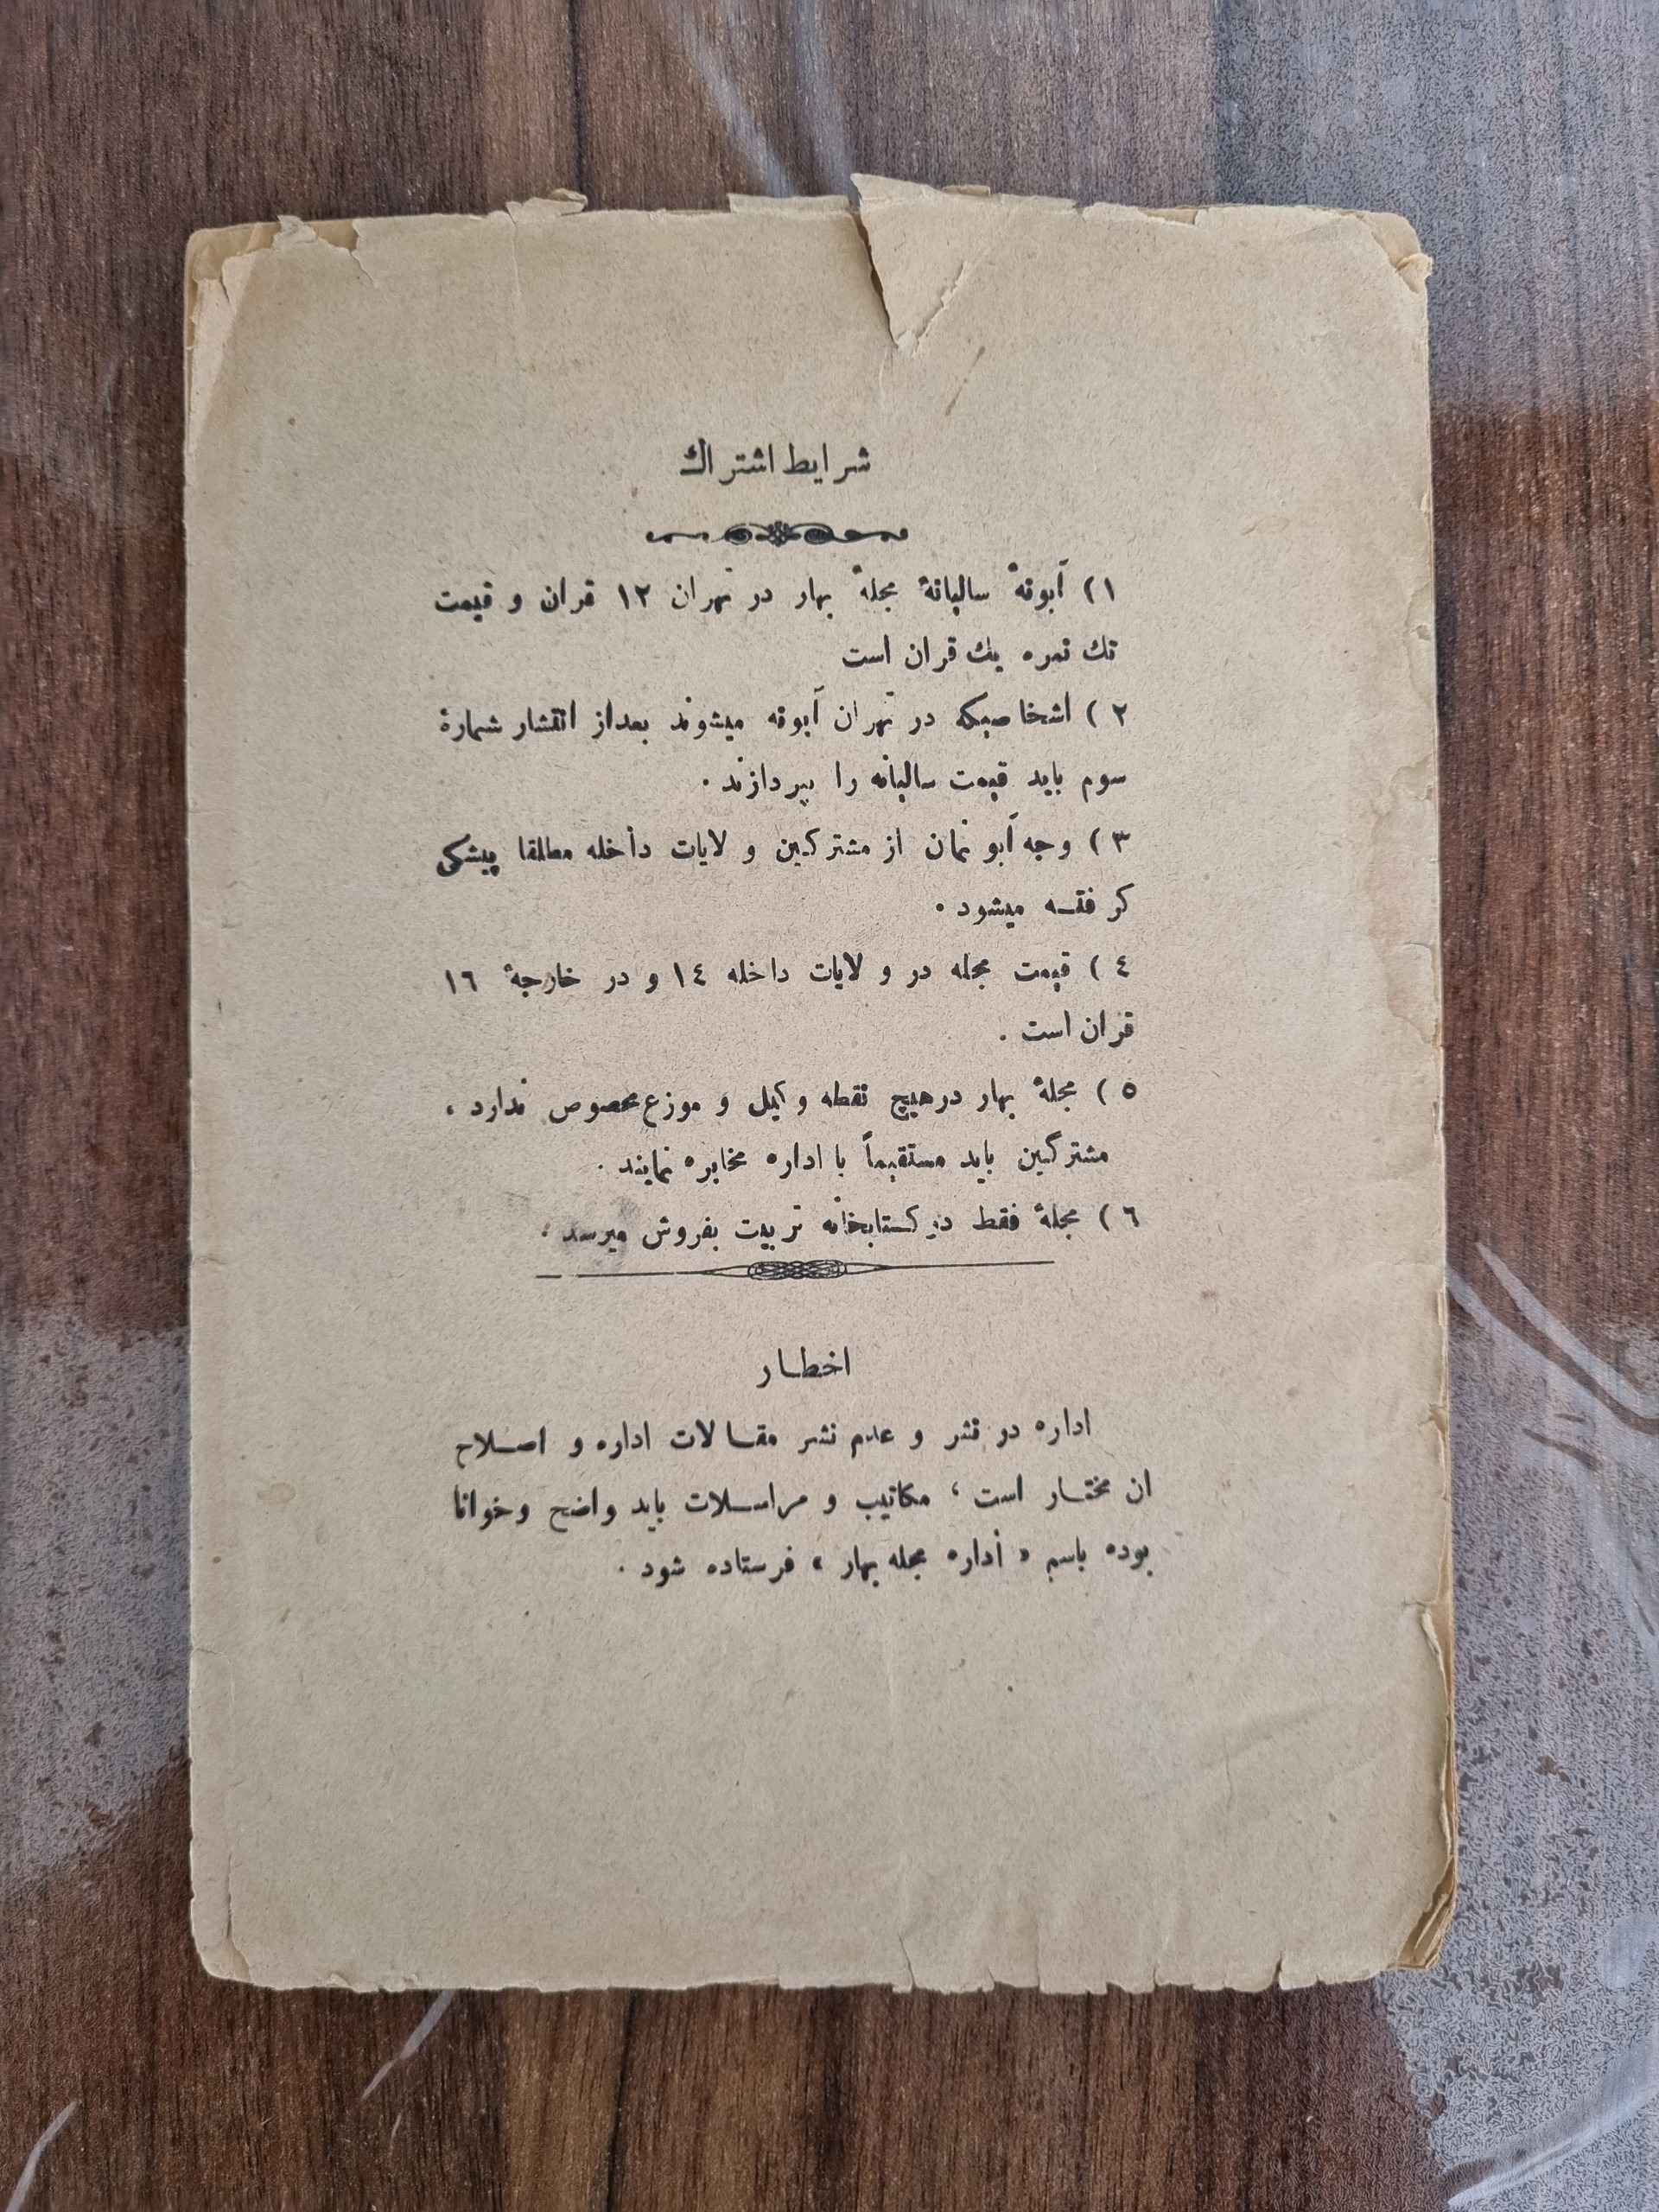 شرایط اشتراك
۱) آبونهٔ سالیانهٔ مجلهٔ بهار در تهران ۱۲ قران و قیمت
تك نمره یك قران است
۲) اشخاصیکه در تهران آبونه میشوند بعداز انتشار شمارهٔ
سوم باید قیمت سالیانه را بپردازند .
۳) وجه آبونمان از مشترکین ولایات داخله مطلقا پیشکی
کرفته میشود .
٤) قیمت مجله در ولایات داخله ۱٤ و در خارجهٔ ۱٦
قران است .
٥) مجلهٔ بهار درهیچ نقطه وکیل و موزع مخصوص ندارد ،
مشترکین باید مستقیماً با اداره مخابره نمایند .
٦) مجلهٔ فقط در کتابخانه تربیت بفروش میرسد .
اخطار
اداره در نشر و عدم نشر مقالات اداره و اصلاح
ان مختار است ، مکاتیب و مراسلات باید واضح وخوانا
بوده باسم « اداره مجله بهار » فرستاده شود .